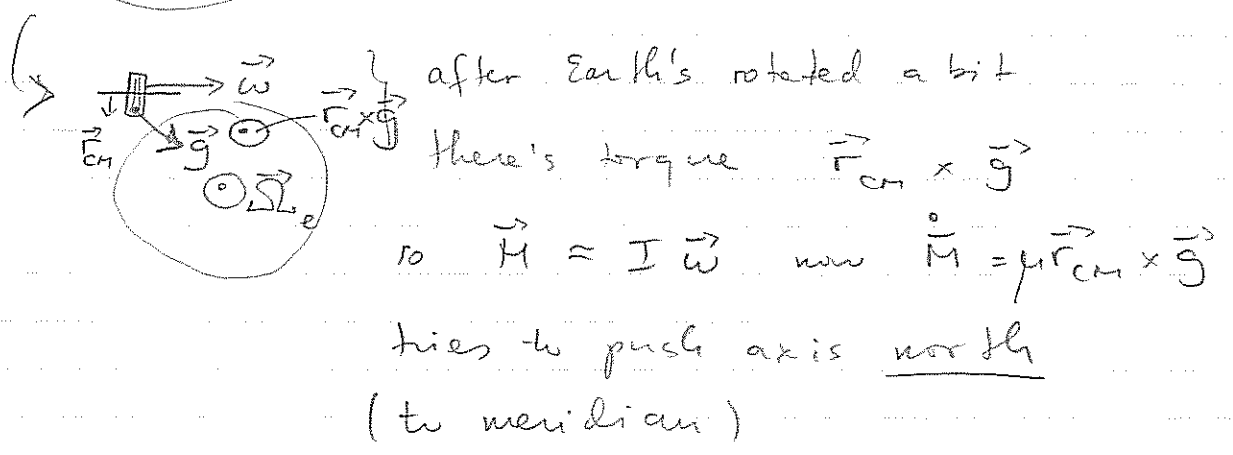 ω⃗
r⃗_CM
g⃗
r⃗_CM × g⃗
Ω⃗_e
after Earth's rotated a bit
there's torque r⃗_CM × g⃗
so M⃗ ≈ I ω⃗ now M⃗̇ = μ r⃗_CM × g⃗
tries to push axis north
(to meridian)